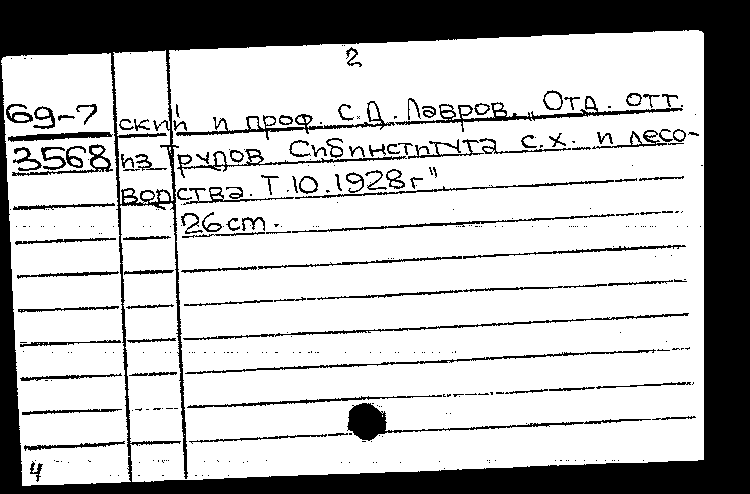 2
69-7 ский и проф. С.Д. Лавров. „Отд. отт.
3568 из Трудов Сибинститута с.х. и лесо-
водства. Т.10.1928г".
26 cm.
4